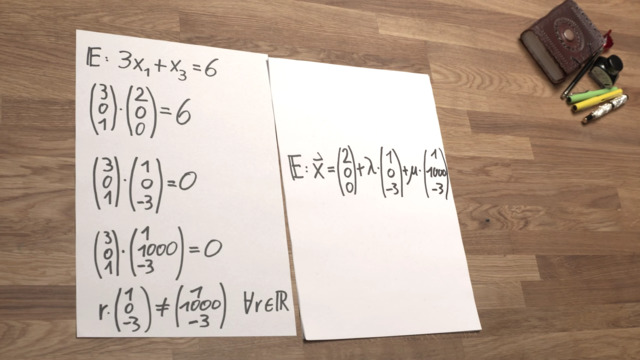 E: 3x₁+x₃=6
(3 0 1)·(2 0 0)=6
(3 0 1)·(1 0 -3)=0
(3 0 1)·(1 1000 -3)=0
r·(1 0 -3)≠(1 1000 -3) ∀r∈ℝ
E: x⃗=(2 0 0)+λ·(1 0 -3)+μ·(1 1000 -3)